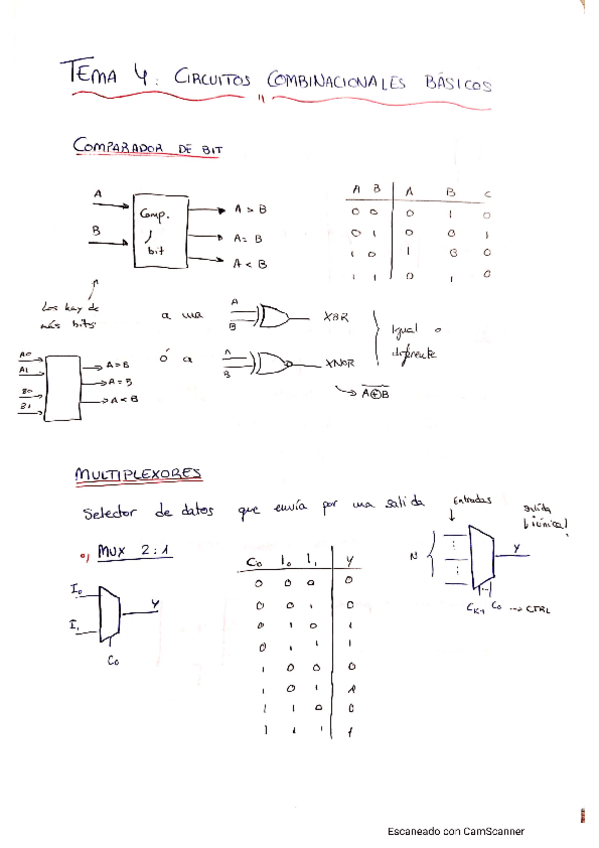 TEMA 4: CIRCUITOS COMBINACIONALES BÁSICOS
COMPARADOR DE BIT
A
B
Comp.
1
bit
A > B
A = B
A < B
A B A B C
0 0 0 1 0
0 1 0 0 1
1 0 1 0 0
1 1 0 1 0
Los hay de
más bits
A0
A1
B0
B1
A>B
A=B
A<B
a una
A
B
XOR
ó a
A
B
XNOR
Igual o
diferente
A⊕B
MULTIPLEXORES
Selector de datos que envía por una salida
Entradas
salida
¡única!
N
Y
CK-1 C0 → CTRL
a) MUX 2:1
I0
I1
Y
C0
C0 I0 I1 Y
0 0 0 0
0 0 1 0
0 1 0 1
0 1 1 1
1 0 0 0
1 0 1 1
1 1 0 0
1 1 1 1
Escaneado con CamScanner